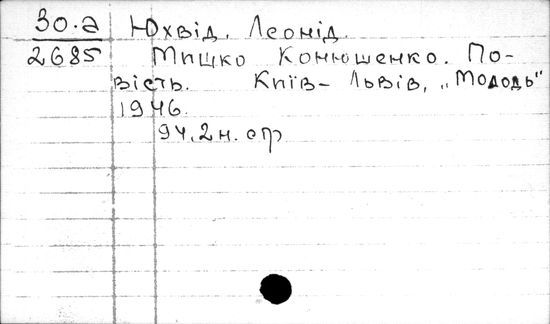 30.а Юхвід, Леонід.
2685 Мишко Конюшенко. По-
вість. Київ – Львів, „Молодь"
1946.
94, 2 н. стр